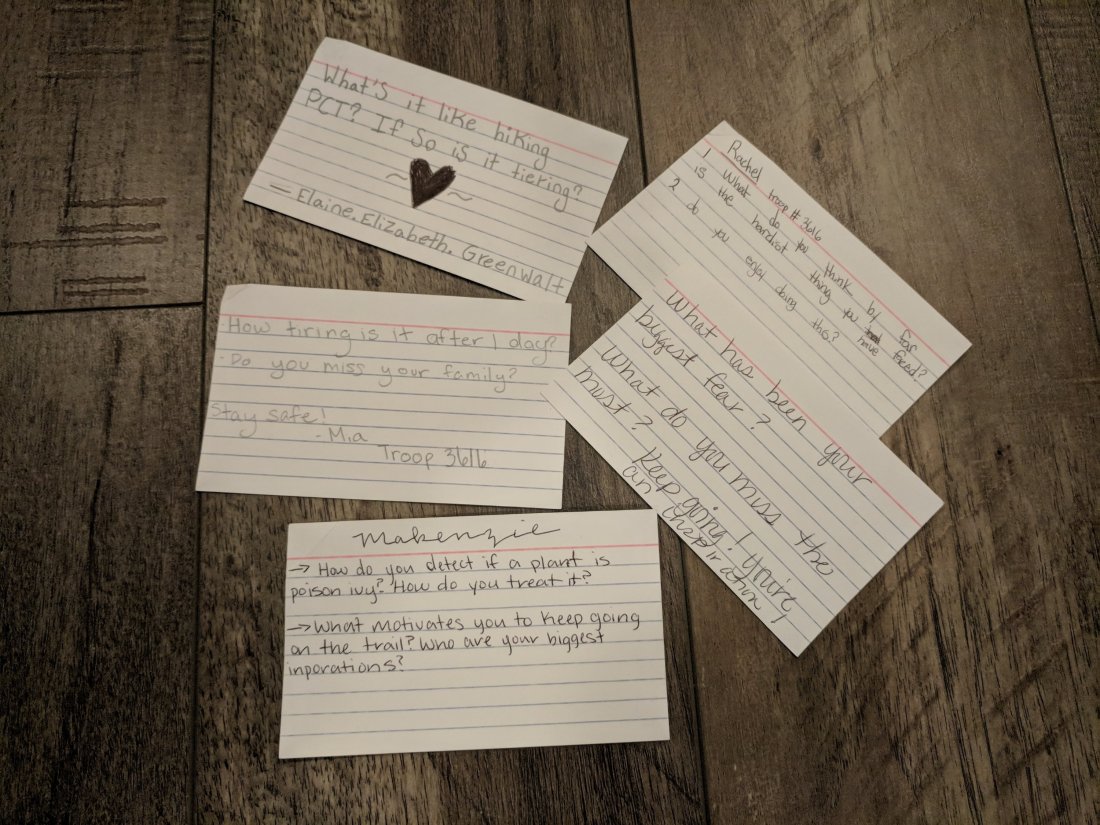 What's it like hiking
PCT? If So is it tiering?
~ ~
— Elaine. Elizabeth. Greenwalt
Rachel troop # 3616
1 What do you think by far
is the hardist thing you have faced?
2 do you enjoy doing this?
How tiring is it after 1 day?
- Do you miss your family?
Stay safe!
- Mia
Troop 3616
What has been your
biggest fear?
What do you miss the
most?
Keep going! you're
an inspiration
Makenzie
→ How do you detect if a plant is
poison ivy? How do you treat it?
→ What motivates you to keep going
on the trail? Who are your biggest
inporations?